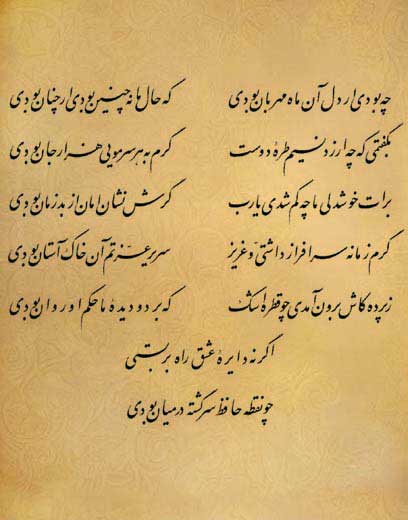 چه بودی ار دل آن ماه مهربان بودی که حال ما نه چنین بودی ار چنان بودی
بگفتمی که چه ارزد نسیم طرهٔ دوست گرم به هر سر مویی هزار جان بودی
برات خوشدلی ما چه کم شدی یارب گرش نشان امان از بد زمان بودی
گرم زمانه سرافراز داشتی و عزیز سریر عزتم آن خاک آستان بودی
ز پرده کاش برون آمدی چو قطرهٔ اشک که بر دو دیدهٔ ما حکم او روان بودی
اگر نه دایرهٔ عشق راه بر بستی
چو نقطه حافظ سرگشته در میان بودی